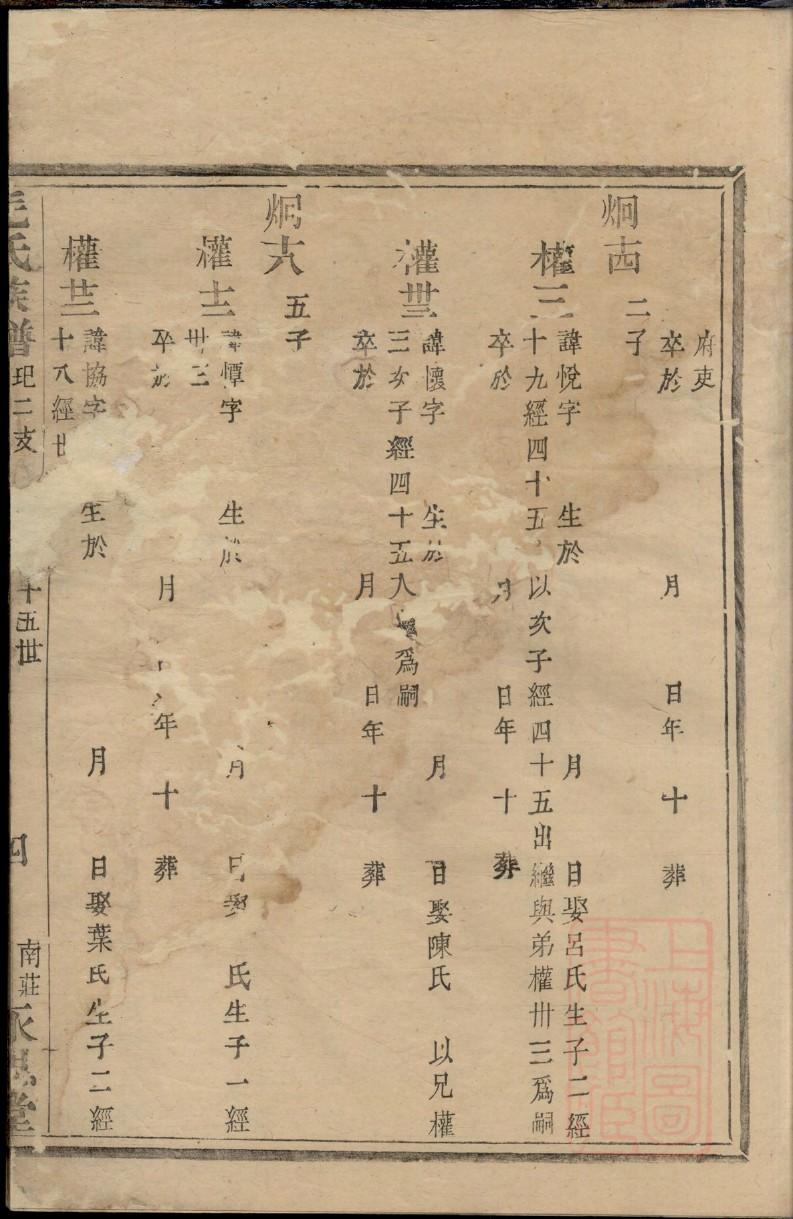 府吏
卒於 月 日年 十 葬
炯十四 二子
權三 諱悅字 生於 月 日娶呂氏生子二經
十九經四十五 以次子經四十五出繼與弟權卅三爲嗣
卒於 月 日年 十 葬
權卅三 諱懷字 生於 月 日娶陳氏 以兄權
三次子經四十五入 爲嗣
卒於 月 日年 十 葬
炯十六 五子
權十二 諱憛字 生於 月 日娶 氏生子一經
卅三
卒於 月 年 十 葬
權廿三 諱協字 生於 月 日娶葉氏生子二經
十八經廿
氏族譜 玘二支 十五世 四 南莊永思堂
上海圖書館藏